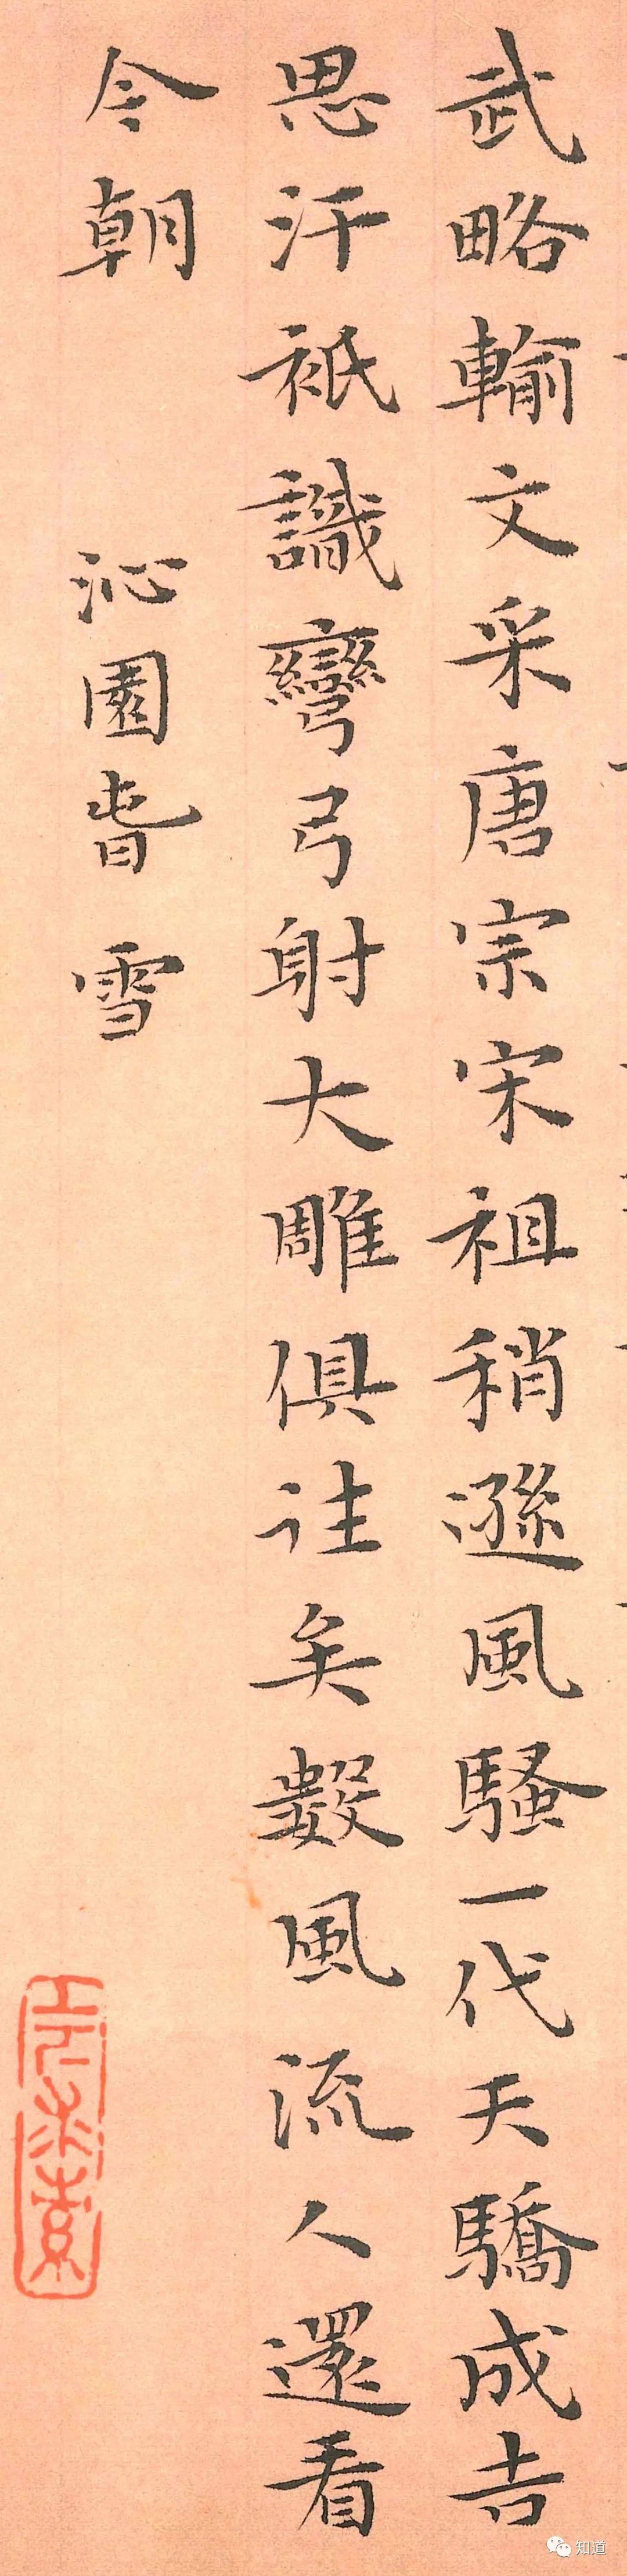 武略輸文采唐宗宋祖稍遜風騷一代天驕成吉
思汗祇識彎弓射大雕俱往矣數風流人還看
今朝 沁園旾 雪
知道